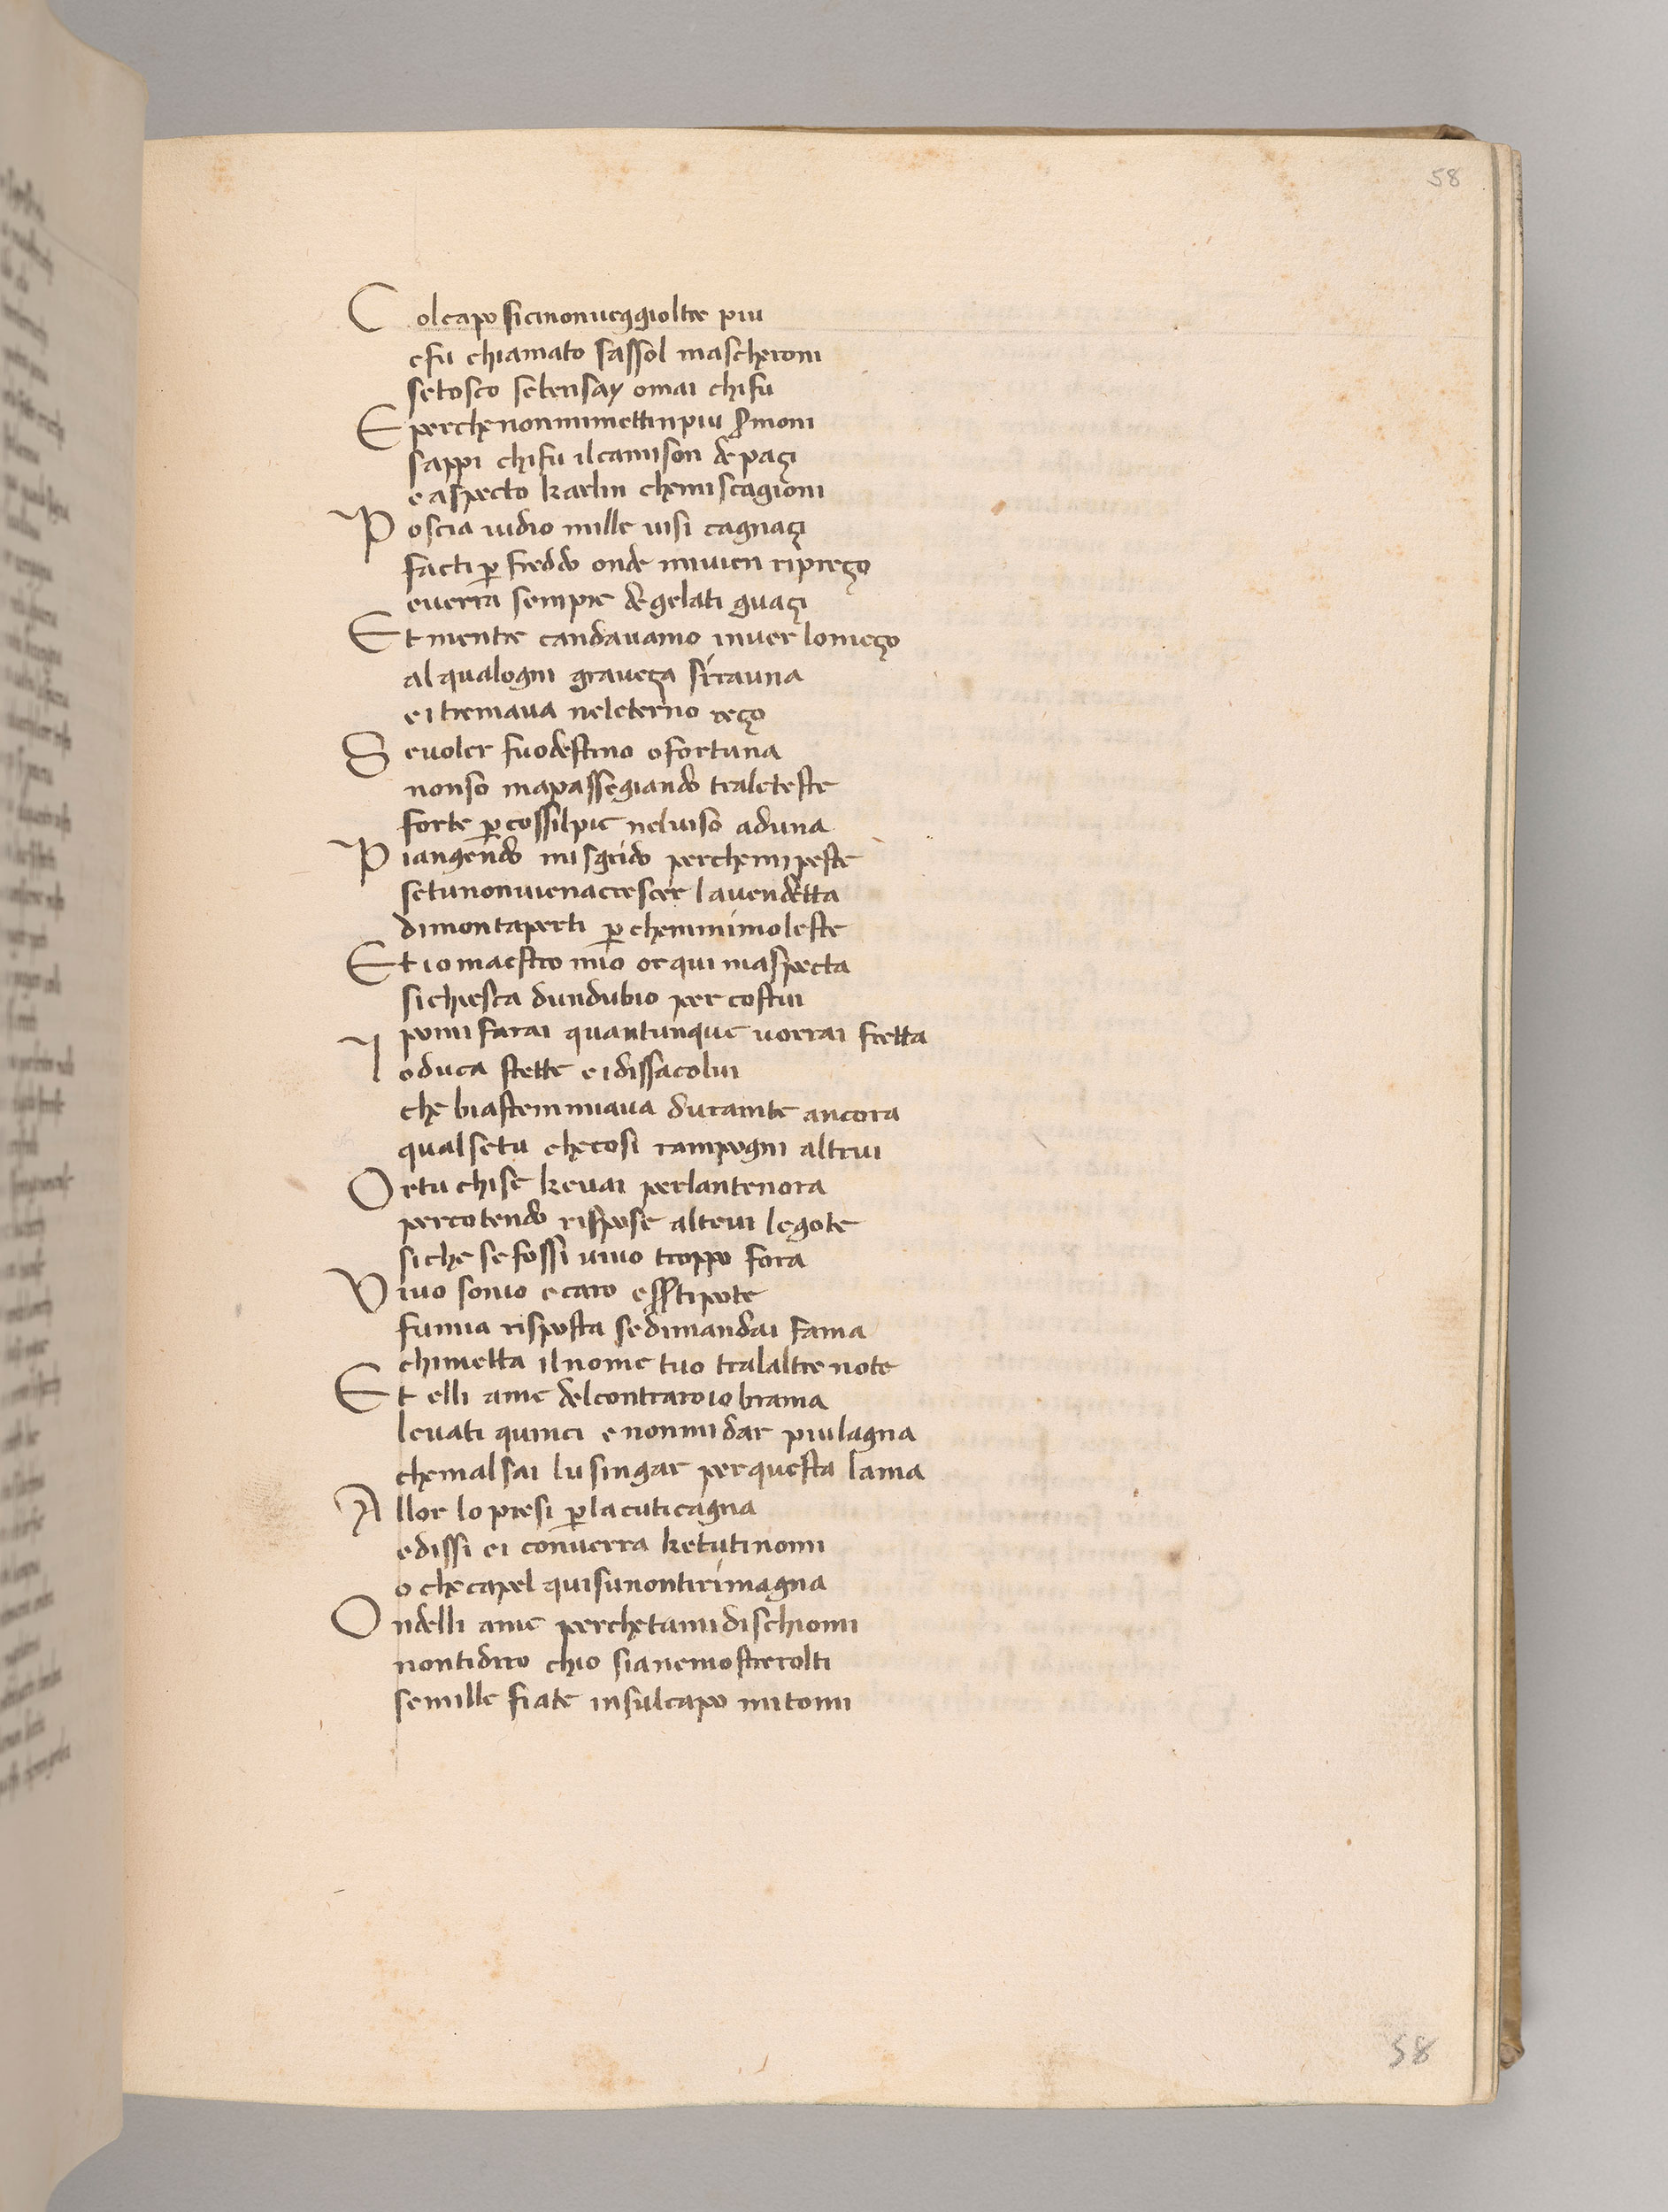 58
Col capo si cinonueggioltre piu
efu chiamato sassol mascheroni
setosco setensay omai chifu
E perche non mimettinpiu smoni
sappi chifu ilcamison de paçi
e aspecto karlin chemi scagioni
Poscia uidio mille uisi cagnaçi
facti p freddo onde miuien ripreço
euerra sempre degelati guaçi
Et mentre candauamo inuer lomeço
al qualogni graueça si rauna
ei tremaua neleterno reço
Se uoler fuodestino ofortuna
nonso mapassegiando traleteste
forte pcossilpie neluiso aduna
Piangendo mi sgrido perchemipeste
setunonuienacrescer lauendetta
dimontaperti p chemmimoleste
Et io maestro mio orqui maspecta
sichiesca dundubio per costui
pomi farai quantunque uorrai fretta
Io duca stette e i dissacolui
che biastemmiaua duramte ancora
qualsetu checosi rampogni altrui
Or tu chi se keuai perlantenora
percotendo rispose altrui legote
siche se fossi uiuo troppo fora
Viuo sonio e caro essr tipote
fumia risposta se dimandai fama
chimetta ilnome tuo tralaltre note
Et elli ame delcontraroio brama
leuati quinci e nonmi dar piulagna
chemalsai lusingar perquesta lama
Allor lo presi p la cuticagna
edissi ei conuerra ketutinomi
o checapel quisunontirimagna
Ondelli ame perchetumi dischiomi
nontidiro chio sianemosterolti
semille fiate insulcapo mitomi
58